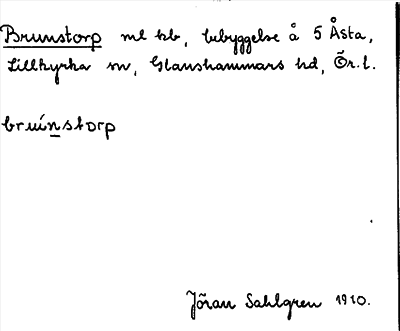 Brunstorp ml kb, bebyggelse å 5 Åsta,
Lillkyrka sn, Glanshammars hd, Ör. l.
bruinstorp
Jöran Sahlgren 1910.